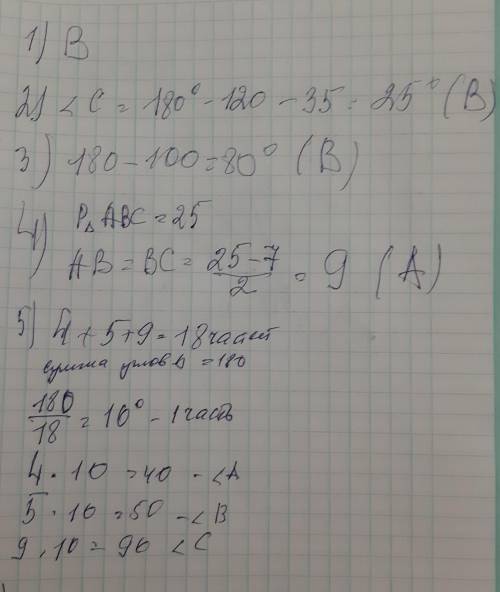 1) В
2) < C = 180° - 120 - 35 = 25° (В)
3) 180 - 100 = 80° (В)
4) P△ ABC = 25
AB = BC = 25-7/2 = 9 (А)
5) 4 + 5 + 9 = 18 частей
сумма углов △ = 180
180/18 = 10° - 1 часть
4 · 10 = 40 - <A
5 · 10 = 50 - <B
9 · 10 = 90 <C